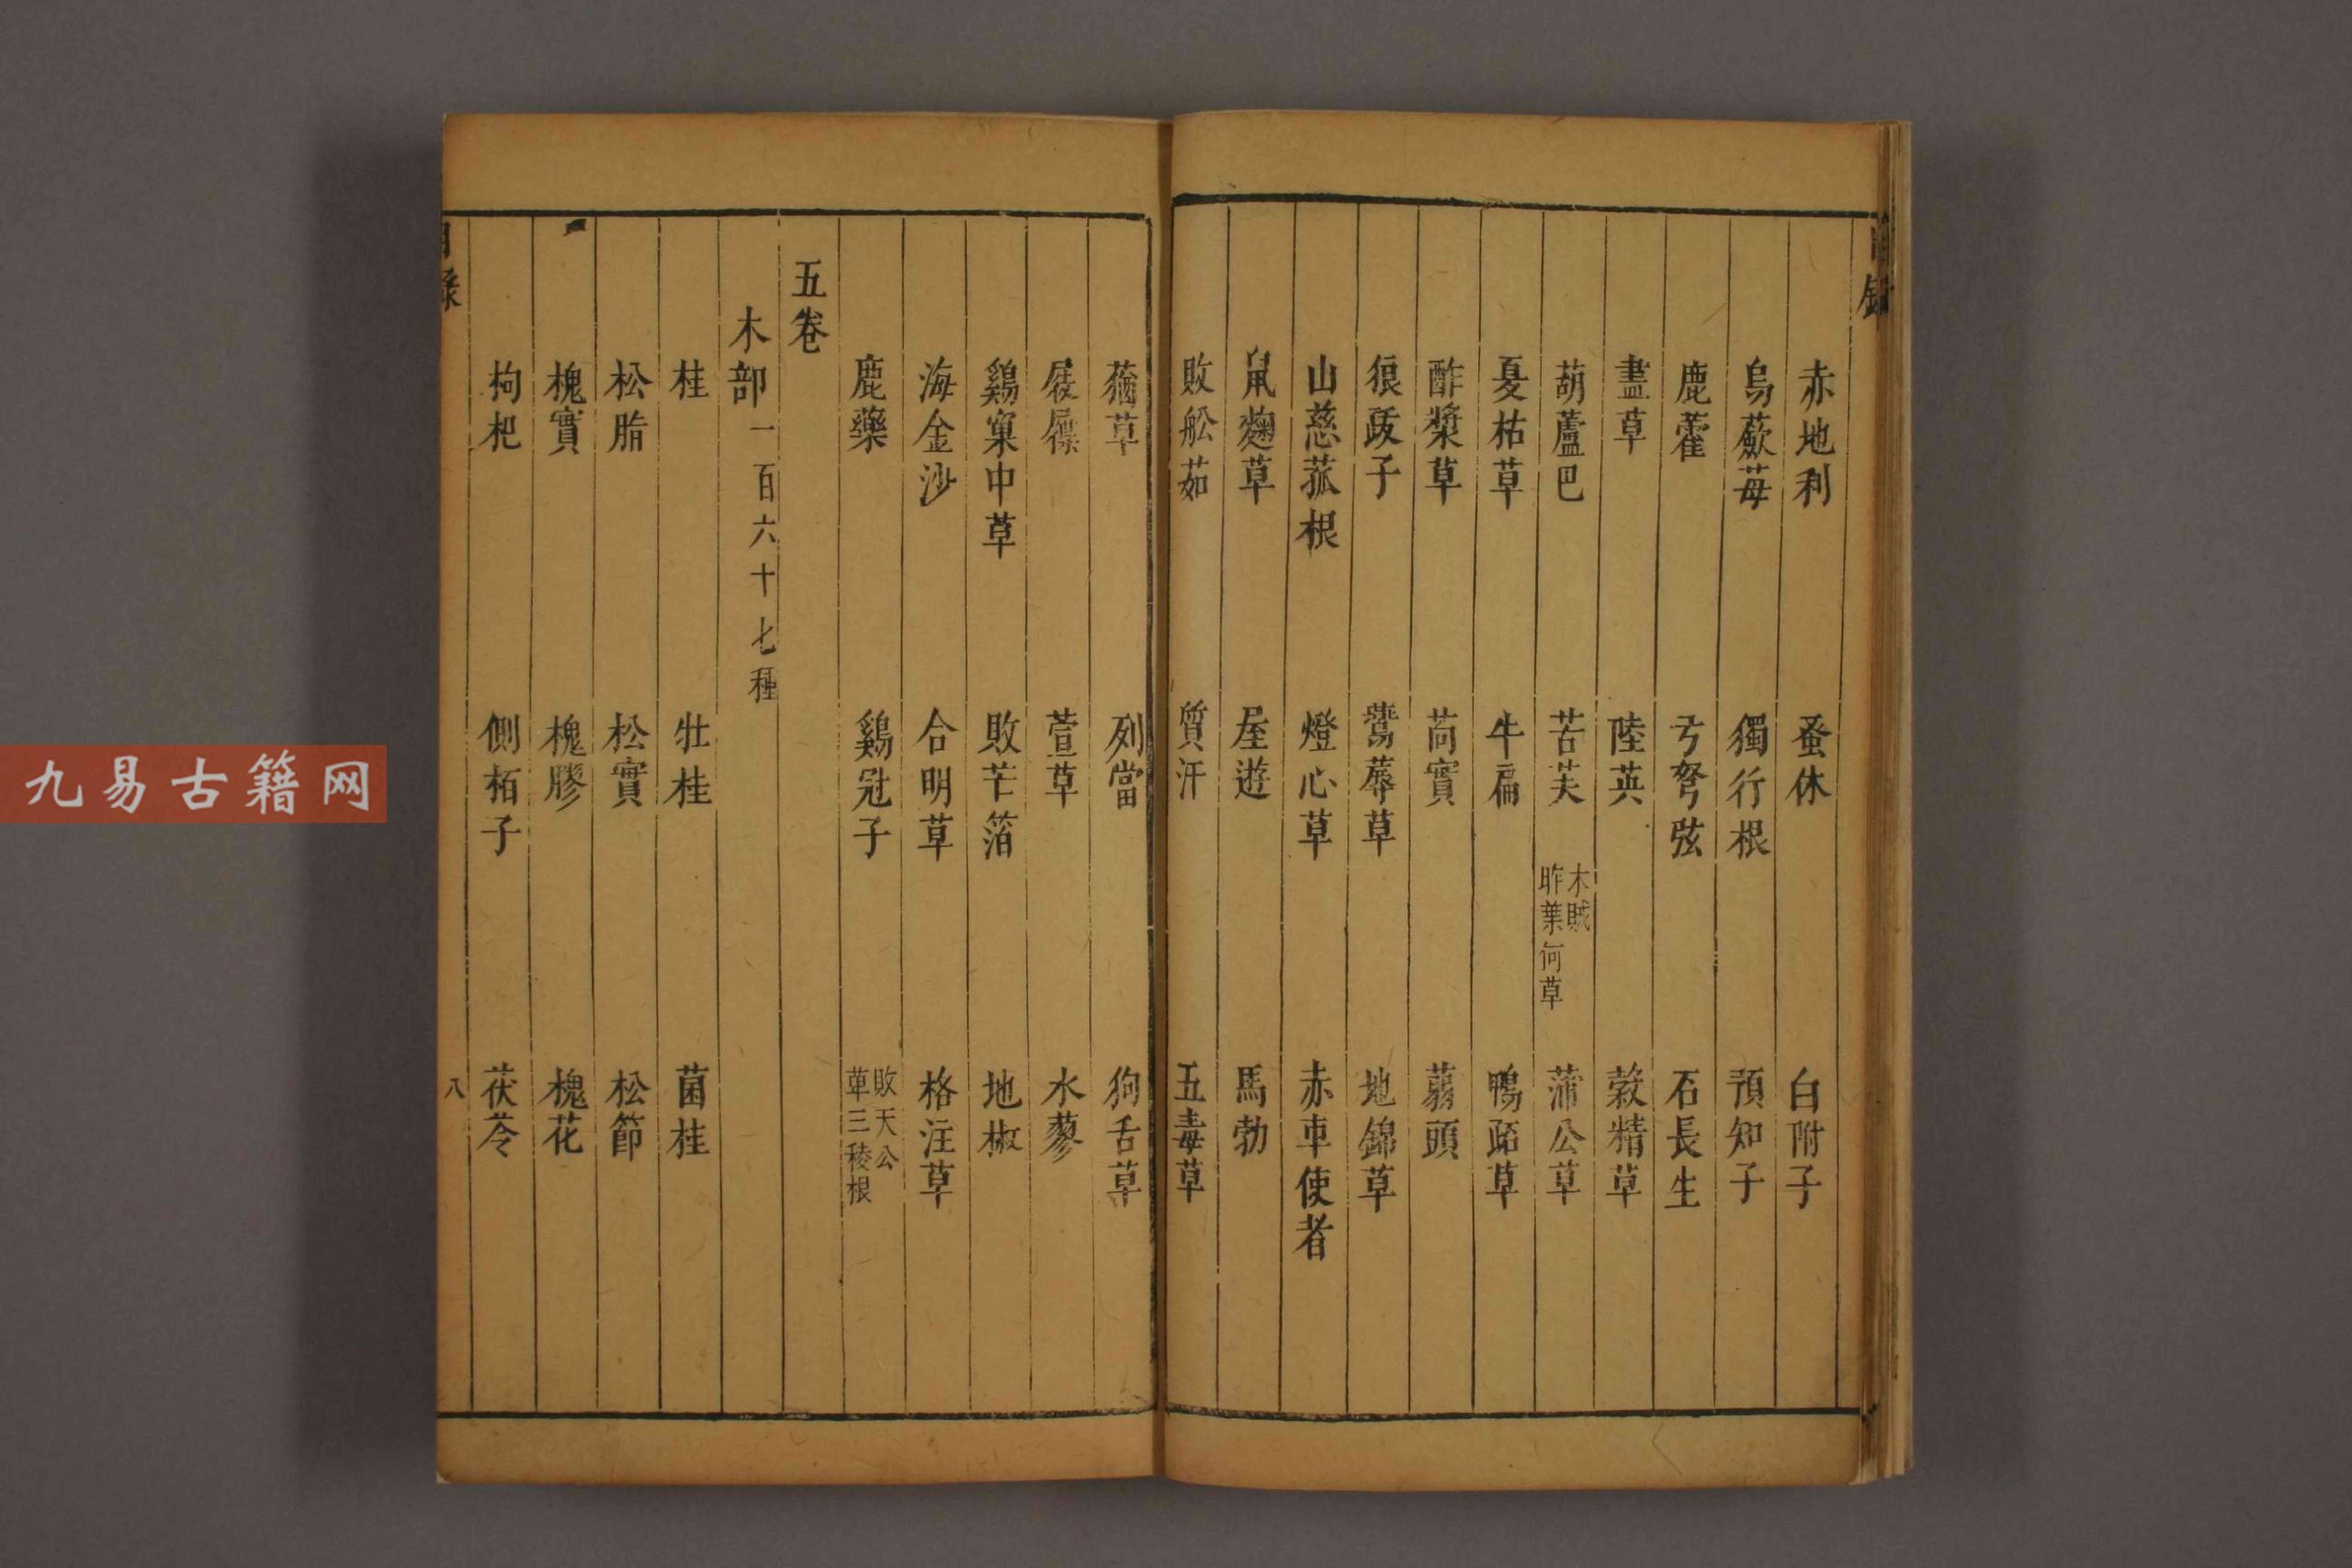 目錄
赤地利 蚤休 白附子
烏蘞莓 獨行根 預知子
鹿藿 弓弩弦 石長生
藎草 陸英 穀精草
葫蘆巴 苦芙 木賊 昨葉何草 蒲公草
夏枯草 牛扁 鴨跖草
酢漿草 苘實 蒻頭
狼跋子 鬱蓐草 地錦草
山慈菰根 燈心草 赤車使者
鼠麴草 屋遊 馬勃
敗舩茹 質汗 五毒草
蕕草 列當 狗舌草
屐屧 萱草 水蓼
鷄窠中草 敗芒箔 地椒
海金沙 合明草 格注草
鹿藥 鷄冠子 敗天公 草三稜根
五卷
木部一百六十七種
桂 牡桂 菌桂
松脂 松實 松節
槐實 槐膠 槐花
枸杞 側栢子 茯苓
目錄 八
九易古籍网